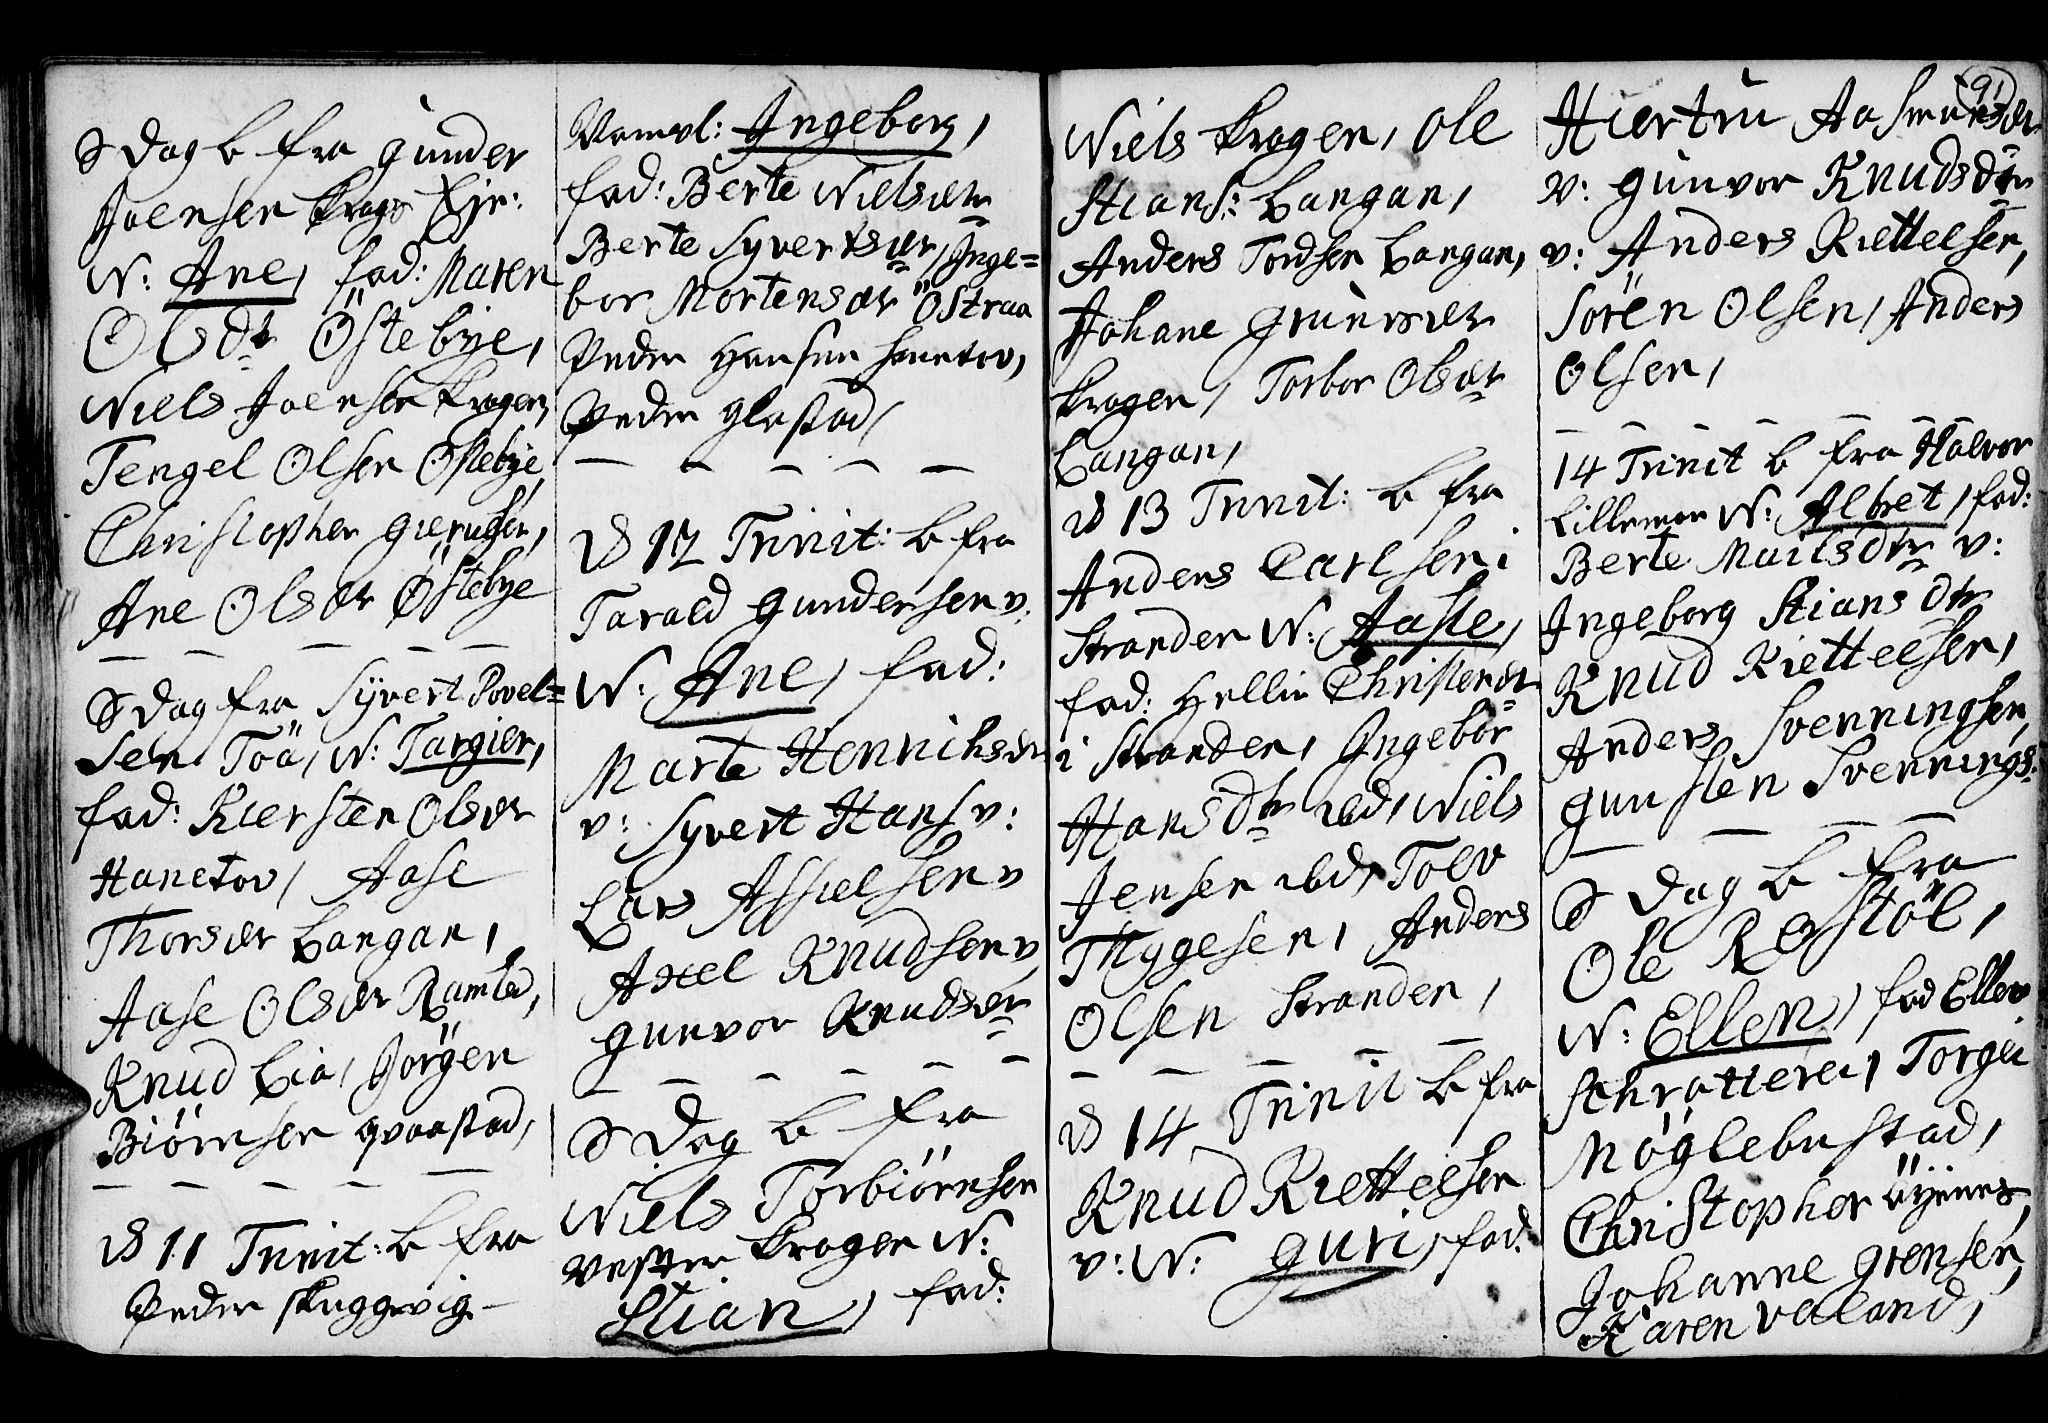 S Dag b fra Gunder
Joensen Krage Eje:
N: Ane, fad: Maren
Olsdtr Östebÿe,
Niels Joensen Kragen,
Tengel Olsen Östebÿe
Christopher
Ane Olsdr Östebÿe
S Dag fra Sÿvert Povel=
sen Toä, N: Targier,
fad: Kiersten Olsdr
Hanetov, Aase
Thorsdr Langan,
Aase Olsdr
Knud Lia, Jörgen
Biörnsen Qvaastad,
D 11 Trinit: b fra
Peder Skuggevig
Ingeborg,
fad: Berte Nielsdtr
Berte Syvertsdr, Inge=
bor Mortensdr Östraa
Peder Hansen Hanetov,
Peder Glastad,
D 12 Trinit: b fra
Tarald Gundersen v.
N: Ane, fad:
Marte Henrichsdr
v: Syvert Hans v:
Lars Assielsen v
Axel Knudsen v,
Gunvor Knudsdr
S Dag b fra
Niels Torbiörnsen
Vester Kragen N:
Stian, fad:
Niels Kragen, Ole
Stians: Langan,
Anders Tordsen Langan,
Johane
Kragen, Torbor Olsdr
Langan,
D 13 Trinit: b fra
Anders Carlsen i
Stranden N: Aasle,
fad: Hellin Christendr
i Stranden, Ingebor
Hansdtr ibd, Niels
Jensen ibd, Tolv
Thygesen, Anders
Olsen Stranden,
D 14 Trinit b fra
Knud Kiettelsen
v: N: Guri, fad:
91
Hiertru Aasmundsdr
v: Gunvor Knudsdtr
v: Anders Kiettelsen,
Sören Olsen, Anders
Olsen,
14 Trinit b fra Halvor
Lillemoe N: Albret, fad:
Berte v:
Ingeborg Stiansdtr
Knud Kiettelsen,
Anders Svenningsen,
Gunsten Svennings:
S Dag b fra
Ole Restöl,
N: Ellen, fad Ellen
Torgier
Möglebustad,
Christopher
Johanne Grensen,
Karen Valand,